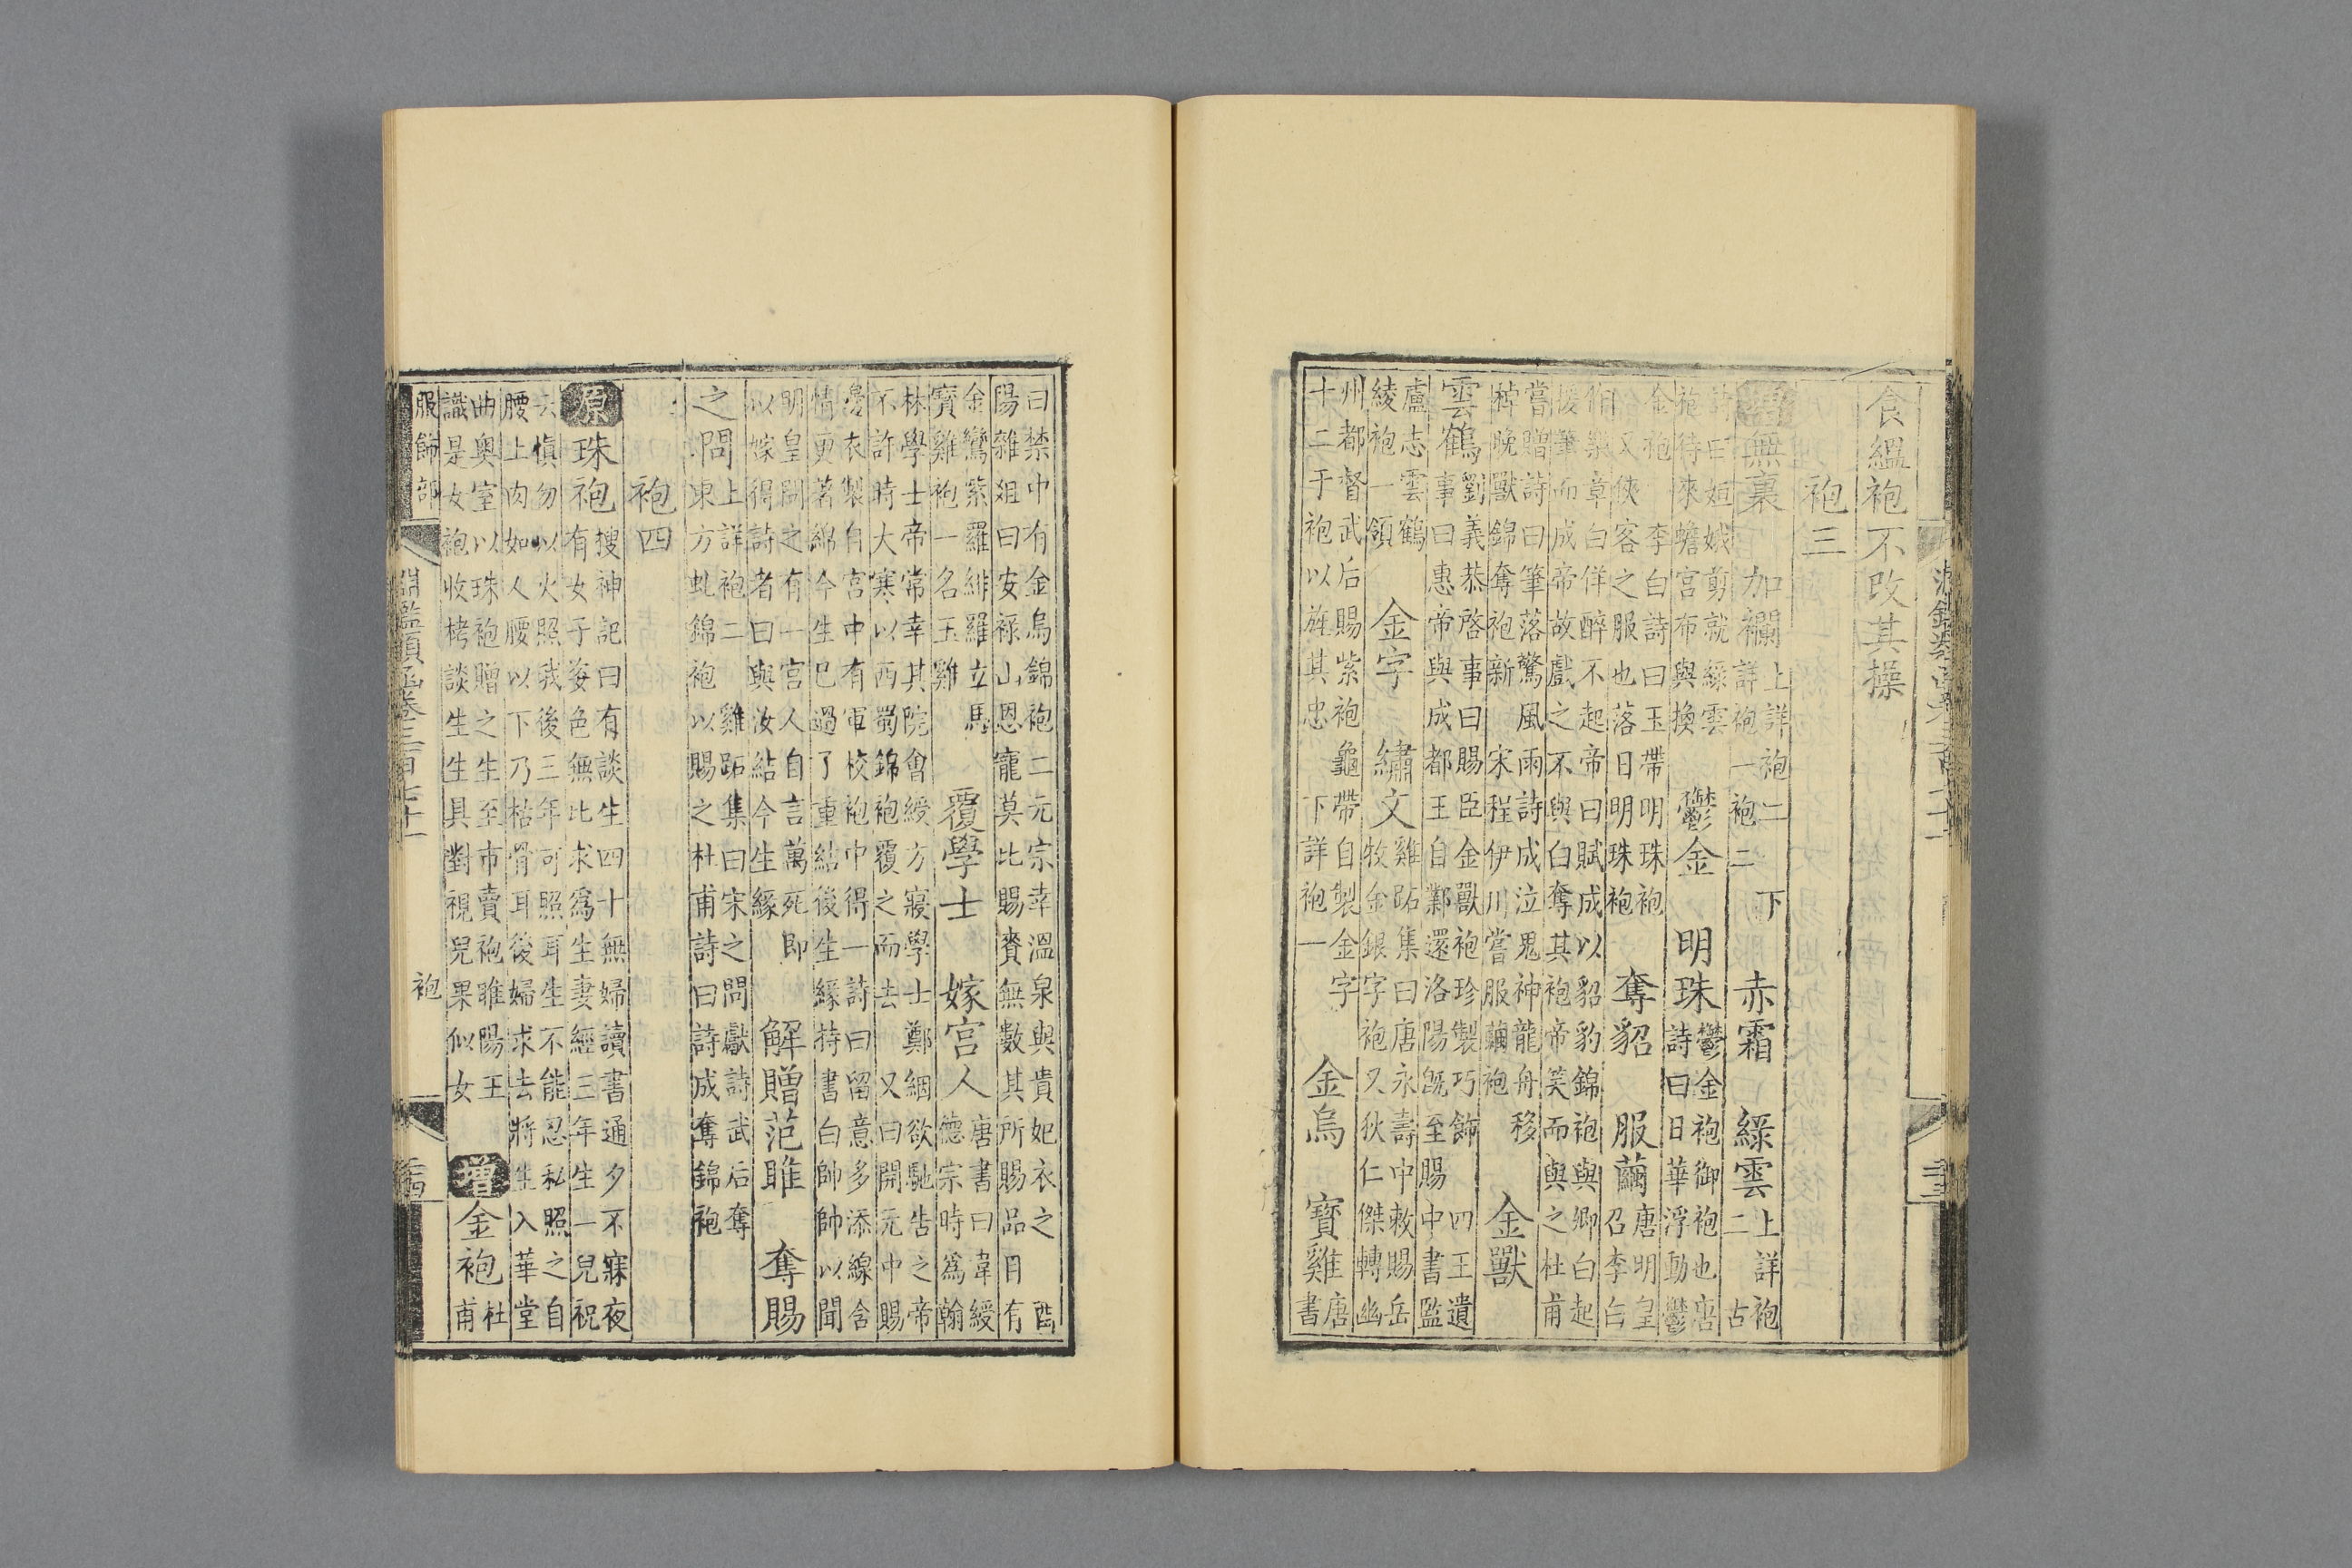 食縕袍不改其操
袍三
增無裏 加襴
上詳袍二 下
詳袍一袍二
赤霜 綠雲
上詳袍
二 古
詩曰姮娥剪就綠雲
袍待來蟾宮布與換
鬱金 明珠
鬱金袍御袍也唐
詩曰日華浮動鬱
金袍 李白詩曰玉帶明珠袍
又俠客之服也落日明珠袍
奪貂 服繭
唐明皇
召李白
禁草白佯醉不起帝曰賦成以貂豹錦袍與卿白起
援筆而成帝故戲之不與白奪其袍帝笑而與之杜甫
嘗贈詩曰筆落驚風雨詩成泣鬼神龍舟移
棹晚獸錦奪袍新 宋程伊川嘗服繭袍
金獸
雲鶴
劉義恭啓事曰賜臣金獸袍珍製巧飾 四王遺
事曰惠帝與成都王自鄴還洛陽旣至賜中書監
盧志雲鶴
綾袍一領
金字 繡文
雞跖集曰唐永壽中敕賜岳
牧金銀字袍又狄仁傑轉幽
州都督武后賜紫袍龜帶自製金字
十二于袍以旌其忠 下詳袍一
金烏 寶雞
唐
書
曰禁中有金烏錦袍二元宗幸溫泉與貴妃衣之 酉
陽雜俎曰安祿山恩寵莫比賜賚無數其所賜品目有
金鸞紫羅緋羅立馬
寶雞袍一名玉雞
覆學士 嫁宮人
唐書曰韋綬
德宗時爲翰
林學士帝常幸其院會綬方寢學士鄭絪欲馳告之帝
不許時大寒以西蜀錦袍覆之而去 又曰開元中賜
邊衣製自宮中有軍校袍中得一詩曰留意多添線含
情更著綿今生已過了重結後生緣持書白帥帥以聞
明皇問之有一宮人自言萬死即
以嫁得詩者曰與汝結今生緣
解贈范雎 奪賜
之問
上詳袍二 雞跖集曰宋之問獻詩武后奪
東方虬錦袍以賜之杜甫詩曰詩成奪錦袍
袍四
原珠袍
搜神記曰有談生四十無婦讀書通夕不寐夜
有女子姿色無比求爲生妻經三年生一兒祝
云慎勿以火照我後三年可照耳生不能忍私照之自
腰上肉如人腰以下乃枯骨耳後婦求去將生入華堂
曲奧室以珠袍贈之生至市賣袍睢陽王
識是女袍收栲談生生具對視兒果似女
增金袍
杜
甫
服飾部 淵鑑類函卷三百七十一 袍 二十四